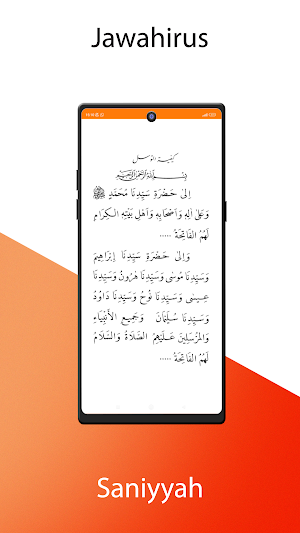 Jawahirus
كيفية التوسل
بِسْمِ اللهِ الرَّحْمٰنِ الرَّحِيْمِ
اِلَى حَضْرَةِ سَيِّدِنَا مُحَمَّدٍ ﷺ
وَعَلَى اٰلِهِ وَاَصْحَابِهِ وَاَهْلِ بَيْتِهِ الْكِرَامِ
لَهُمُ الْفَاتِحَةُ .....
وَاِلَى حَضْرَةِ سَيِّدِنَا إِبْرَاهِيْمَ
وَسَيِّدِنَا مُوسَى وَسَيِّدِنَا هٰرُوْنَ وَسَيِّدِنَا
عِيسَى وَسَيِّدِنَا نُوْحٍ وَسَيِّدِنَا دَاوُدَ
وَسَيِّدِنَا سُلَيْمَانَ وَجَمِيعِ الْأَنْبِيَاءِ
وَالْمُرْسَلِيْنَ عَلَيْهِمُ الصَّلَاةُ وَالسَّلَامُ
لَهُمُ الْفَاتِحَةُ .....
Saniyyah